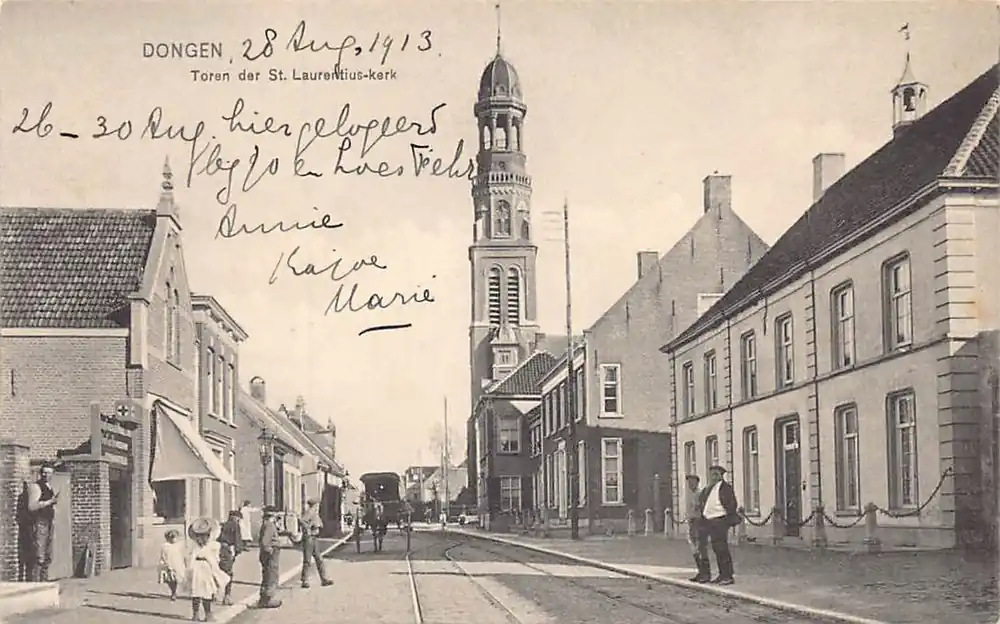 DONGEN, 28 Aug, 1913.
Toren der St. Laurentius-kerk
26-30 Aug. hier gelogeerd
bij Jo en Loes Fehr
Annie
Marie